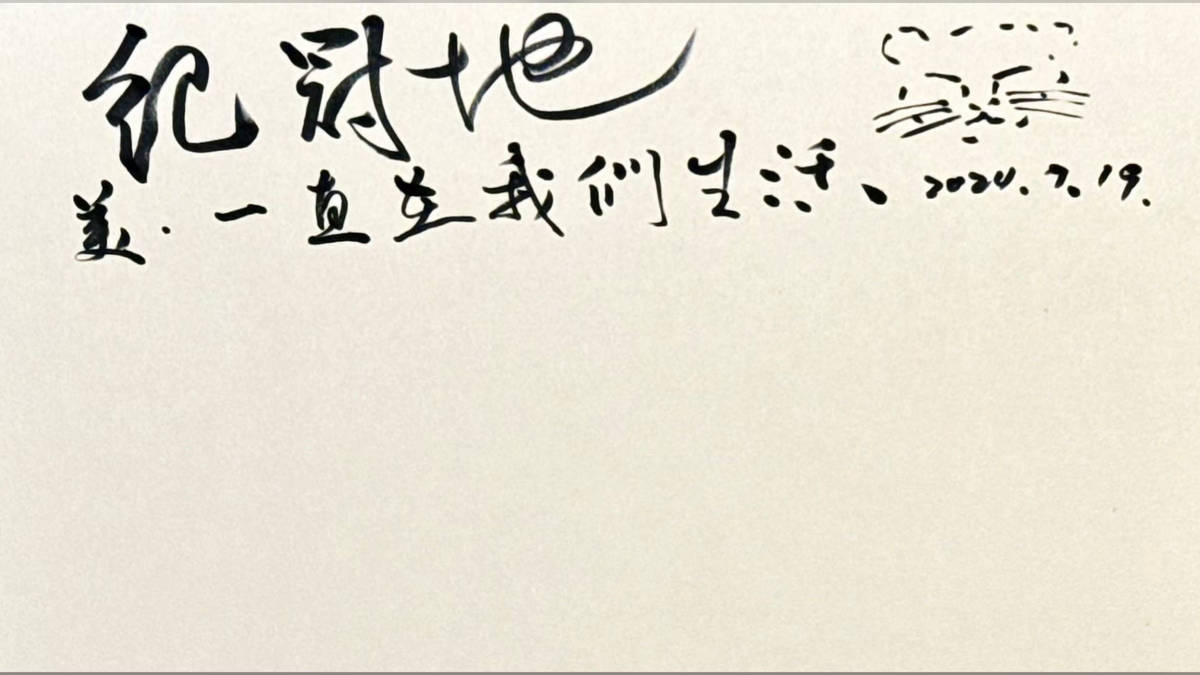 纪冠地
美·一直在我们生活、2024.7.19.